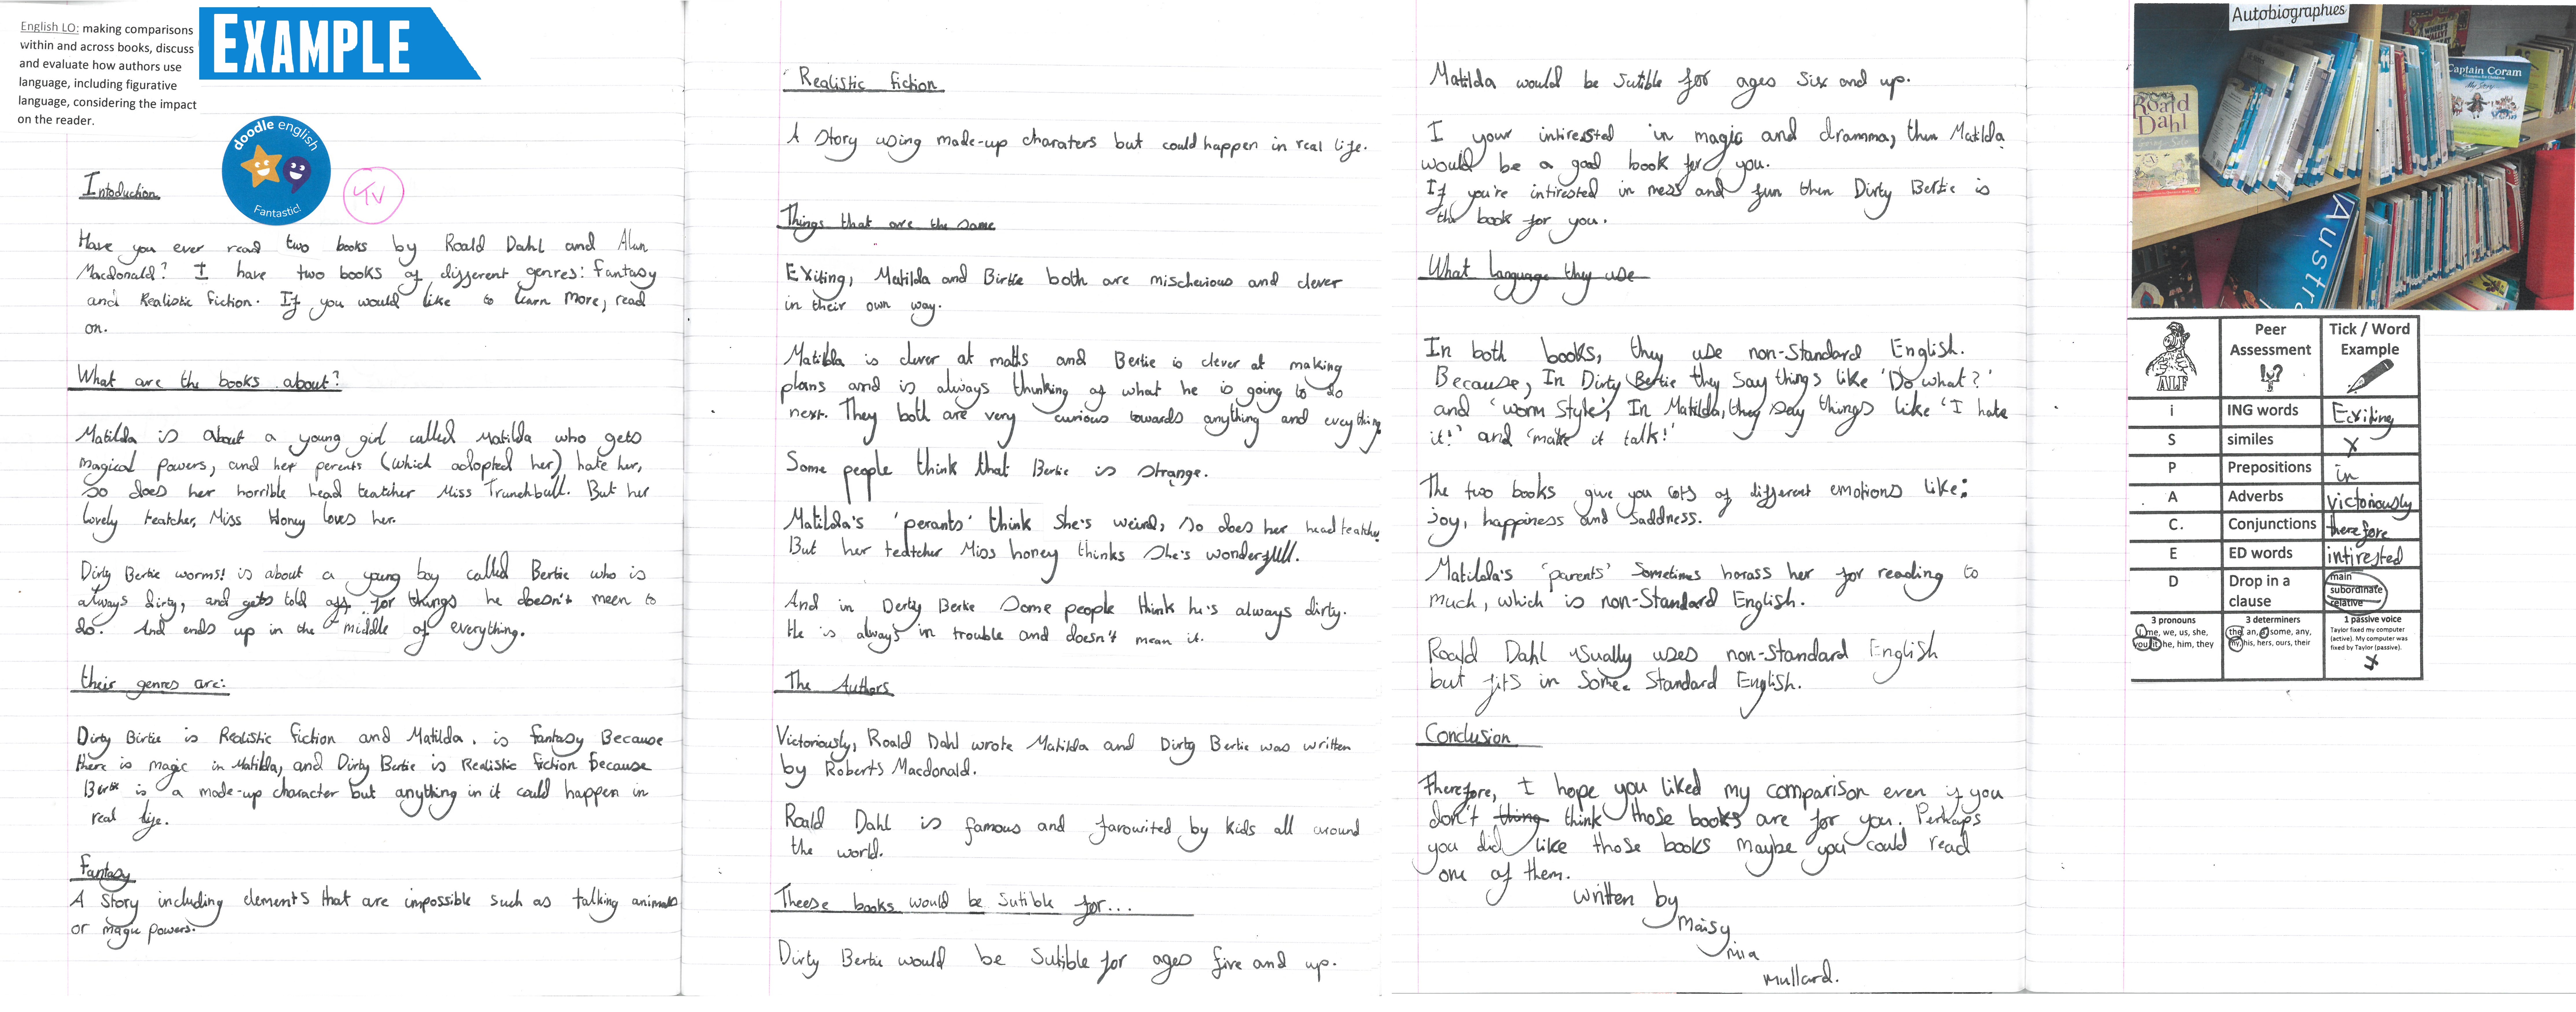 English LO: making comparisons
within and across books, discuss
and evaluate how authors use
language, including figurative
language, considering the impact
on the reader.
EXAMPLE
doodle english
Fantastic!
Intoduction
Have you ever read two books by Roald Dahl and Alan
Macdonald? I have two books of different genres: Fantasy
and Realistic Fiction. If you would like to learn more, read
on.
What are the books about?
Matilda is about a young girl called Matilda who gets
magical powers, and her perents (which adopted her) hate her,
so does her horrible head teatcher Miss Trunchbull. But her
lovely teatcher, Miss Honey loves her.
Dirty Bertie worms! is about a young boy called Bertie who is
always dirty, and gets told off for things he doesn't meen to
do. And ends up in the middle of everything.
their genres are:
Dirty Birtie is Realistic fiction and Matilda. is fantasy Because
there is magic in Matilda, and Dirty Bertie is Realistic fiction because
Bertie is a made-up character but anything in it could happen in
real life.
Fantasy
A Story including elements that are impossible such as talking animals
or magic powers.
Realistic fiction
A Story using made-up charaters but could happen in real life.
Things that are the same
Exiting, Matilda and Birtie both are mischevious and clever
in their own way.
Matilda is clever at maths and Bertie is clever at making
plans and is always thinking of what he is going to do
next. They both are very curious towards anything and everything
Some people think that Bertie is strange.
Matilda's 'perants' think she's weird, so does her head teatcher
But her teatcher Miss honey thinks she's wonderfull.
And in Derty Bertie Some people think he's always dirty.
He is always in trouble and doesn't mean it.
The Authors
Victoriously, Roald Dahl wrote Matilda and Dirty Bertie was written
by Roberts Macdonald.
Roald Dahl is famous and favowited by kids all around
the world.
Theese books would be Sutible for...
Dirty Bertie would be Sutible for ages five and up.
Matilda would be sutible for ages six and up.
I your intirested in magic and dramma, then Matilda
would be a good book for you.
If you're intirested in mess and fun then Dirty Bertie is
the book for you.
What language they use
In both books, they use non-Standard English.
Because, In Dirty Bertie they say things like 'Do what?'
and 'worm style', In Matilda, they say things like 'I hate
it!' and 'make it talk!'
The two books give you lots of different emotions like:
joy, happiness and saddness.
Matilda's 'parents' Sometimes harass her for reading to
much, which is non-Standard English.
Roald Dahl usually uses non-Standard English
but fits in Some. Standard English.
Conclusion
Therefore, I hope you liked my comparison even if you
don't thing think those books are for you. Perhaps
you did like those books maybe you could read
one of them.
written by
Maisy
mia
Mullard.
Autobiographies
Roald
Dahl
Captain Coram
Austra
ALF
Peer
Assessment
Tick / Word
Example
i ING words Exiting
S similes x
P Prepositions in
A Adverbs victoriously
C. Conjunctions therefore
E ED words intirested
D Drop in a
clause
main
subordinate
relative
3 pronouns
I, me, we, us, she,
you, it, he, him, they
3 determiners
the, an, a, some, any,
my, his, hers, ours, their
1 passive voice
Taylor fixed my computer
(active). My computer was
fixed by Taylor (passive).
x